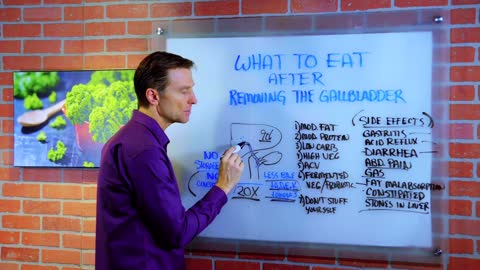 WHAT TO EAT
AFTER
REMOVING THE GALLBLADDER
NO
NO
20X
LESS BILE
1) MOD. FAT
2) MOD. PROTEIN
3) LOW CARB
4) HIGH VEG
5) ACV
6) FERMENTED
VEG/PROBIOTIC
7) DON'T STUFF
YOURSELF
SIDE EFFECTS
GASTRITIS
ACID REFLUX
DIARRHEA
ABD. PAIN
GAS
FAT MALABSORPTION
CONSTIPATED
STONES IN LIVER